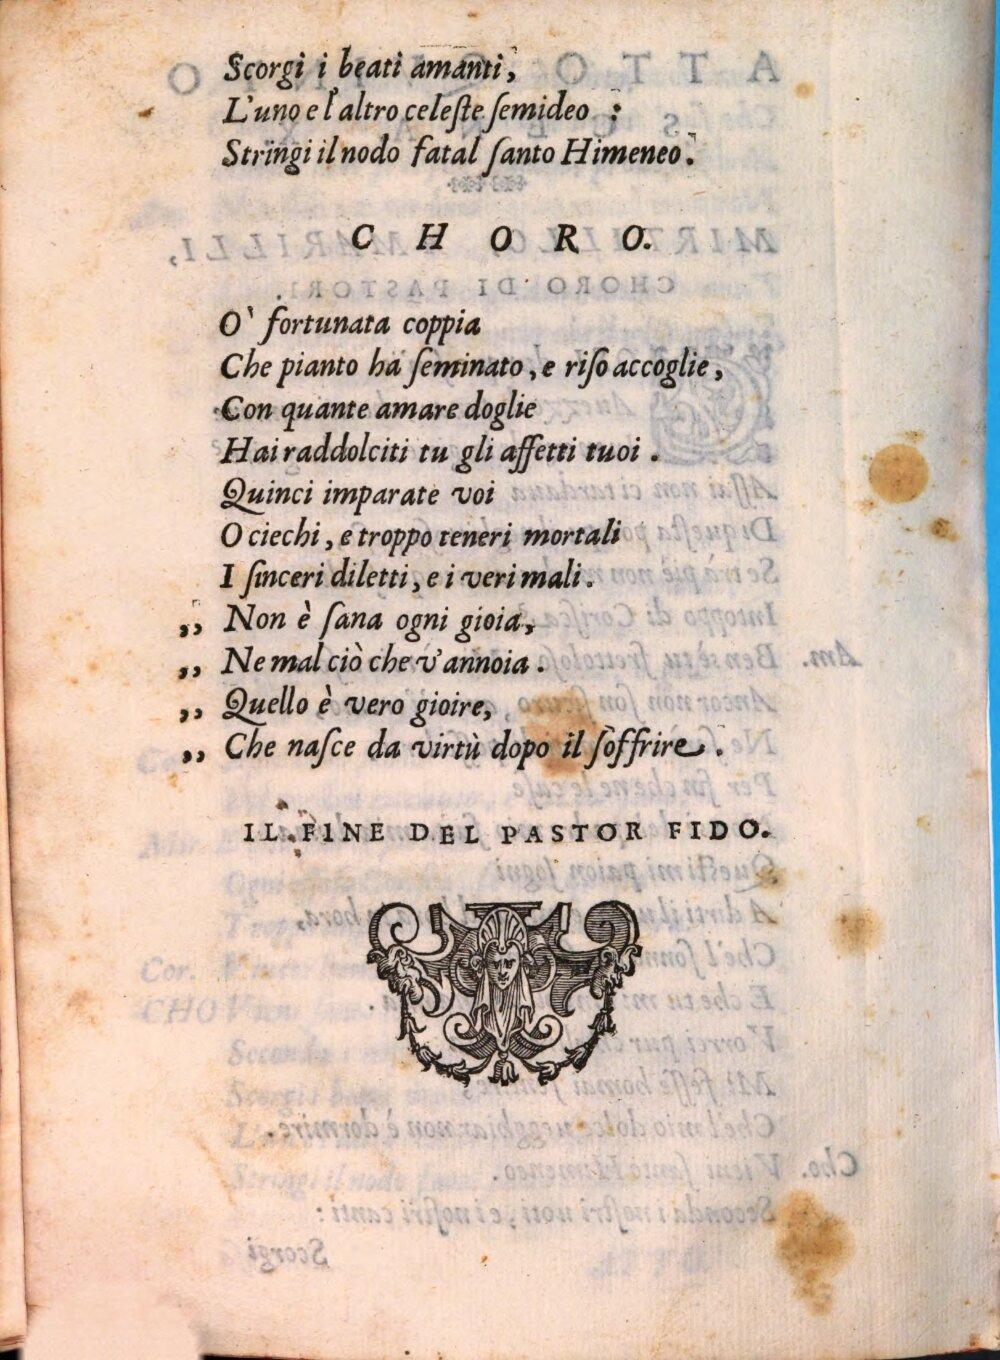 Scorgi i beati amanti,
L'uno e l'altro celeſte ſemideo :
Stringi il nodo fatal ſanto Himeneo.
CHORO.
O' fortunata coppia
Che pianto há ſeminato, e riſo accoglie,
Con quante amare doglie
Hai raddolciti tu gli affetti tuoi.
Quinci imparate voi
O ciechi, e troppo teneri mortali
I ſinceri diletti, e i veri mali.
,, Non è ſana ogni gioia,
,, Ne mal ciò che v'annoia.
,, Quello è vero gioire,
,, Che naſce da virtù dopo il ſoffrire.
IL FINE DEL PASTOR FIDO.